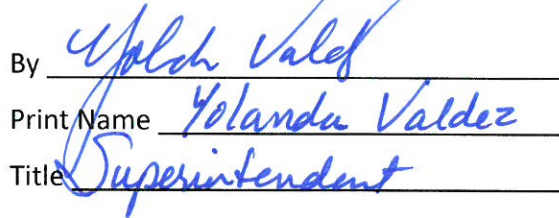 By Yolda Vald
Print Name Yolanda Valdez
Title Superintendent